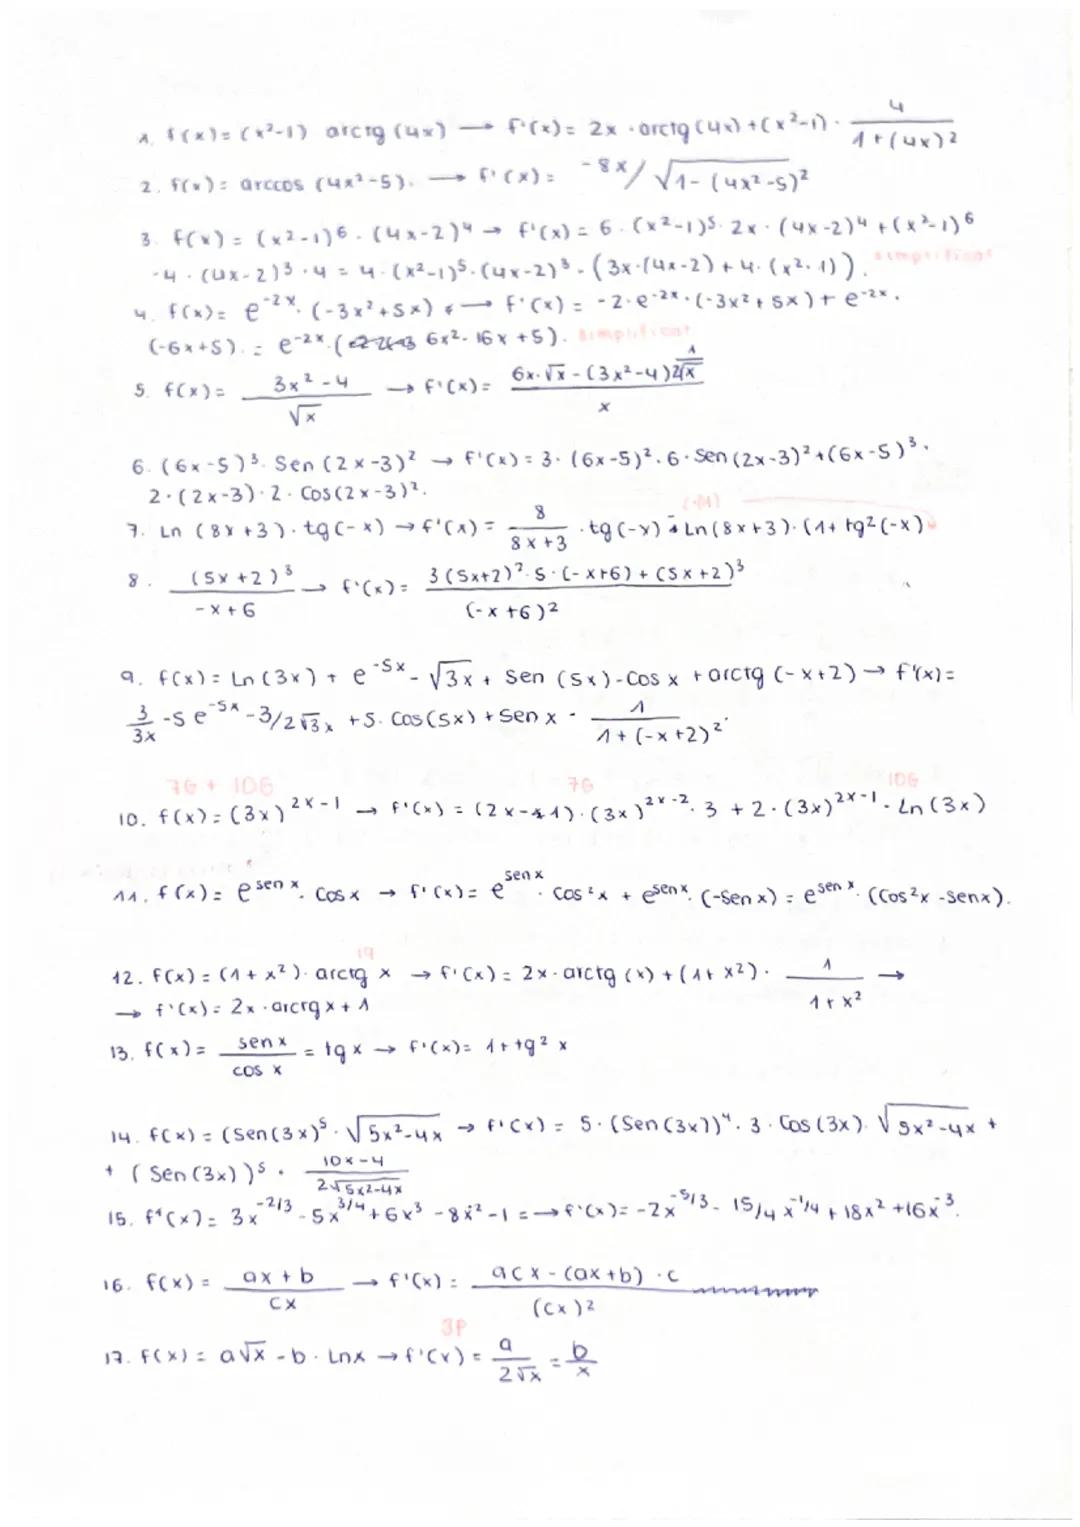 1. f(x)= (x²-1) arctg (4x) → f'(x)= 2x · arctg (4x) + (x²-1) · 4 / 1+(4x)²
2. f(x)= arccos (4x²-5). → f'(x)= -8x / √1-(4x²-5)²
3. f(x)= (x²-1)⁶ · (4x-2)⁴ → f'(x)= 6 · (x²-1)⁵ · 2x · (4x-2)⁴ + (x²-1)⁶
·4 · (4x-2)³ · 4 = 4 · (x²-1)⁵ · (4x-2)³ · (3x·(4x-2) + 4·(x²-1)). simplificat
4. f(x)= e^-2x · (-3x²+5x) → f'(x)= -2·e^-2x · (-3x²+5x) + e^-2x ·
(-6x+5). = e^-2x · (6x²-16x+5). simplificat
5. f(x)= 3x²-4 / √x → f'(x)= 6x·√x - (3x²-4) 1/2√x / x
6. (6x-5)³ · Sen (2x-3)² → f'(x)= 3 · (6x-5)² · 6 · Sen (2x-3)² + (6x-5)³ ·
2·(2x-3)·2·Cos(2x-3)².
(-1)
7. Ln (8x+3) · tg(-x) → f'(x)= 8 / 8x+3 · tg(-x) - Ln(8x+3) · (1+tg²(-x))
8. (5x+2)³ / -x+6 → f'(x)= 3(5x+2)²·5·(-x+6) + (5x+2)³ / (-x+6)²
9. f(x)= Ln(3x) + e^-5x - √3x + Sen (5x) - Cos x + arctg (-x+2) → f'(x)=
3/3x - 5e^-5x - 3/2√3x + 5·Cos(5x) + Sen x - 1 / 1+(-x+2)²
7G + 10G 7G 10G
10. f(x)= (3x)^2x-1 → f'(x)= (2x-1)·(3x)^2x-2 · 3 + 2·(3x)^2x-1 · Ln(3x)
11. f(x)= e^sen x · Cos x → f'(x)= e^sen x · Cos²x + e^sen x · (-Sen x) = e^sen x · (Cos²x - Senx).
19
12. f(x)= (1+x²) · arctg x → f'(x)= 2x · arctg (x) + (1+x²) · 1 / 1+x² →
→ f'(x)= 2x · arctg x + 1
13. f(x)= sen x / cos x = tg x → f'(x)= 1+tg² x
14. f(x)= (Sen(3x)⁵ · √5x²-4x → f'(x)= 5·(Sen(3x))⁴ · 3 · Cos(3x) · √5x²-4x +
+ (Sen(3x))⁵ · 10x-4 / 2√5x²-4x
15. f'(x)= 3x^-2/3 - 5x^3/4 + 6x³ - 8x^-2 - 1 = → f'(x)= -2x^-5/3 - 15/4 x^-1/4 + 18x² + 16x^-3.
16. f(x)= ax+b / cx → f'(x)= acx-(ax+b)·c / (cx)²
3P
17. f(x)= a√x - b · Lnx → f'(x)= a / 2√x = b/x